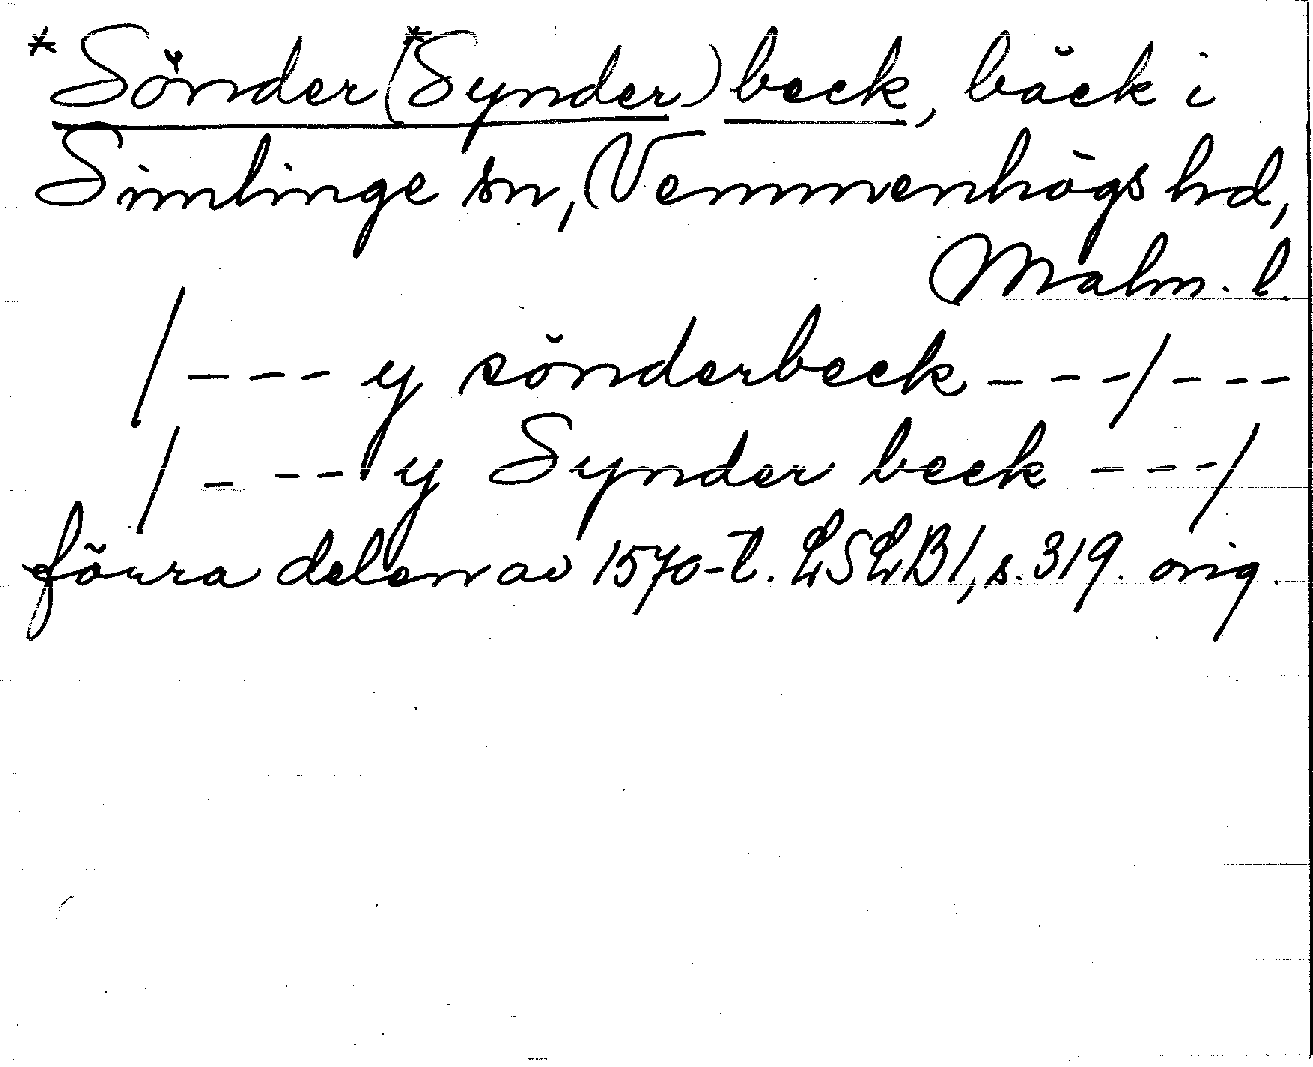 *Sönder(*Synder)beck, bäck i
Simlinge sn, Vemmenhögs hd,
Malm. l.
/---y sönderbeck---/---
/---y Synder beck---/
förra delen av 1570-t. LSLB1, s. 319. orig.